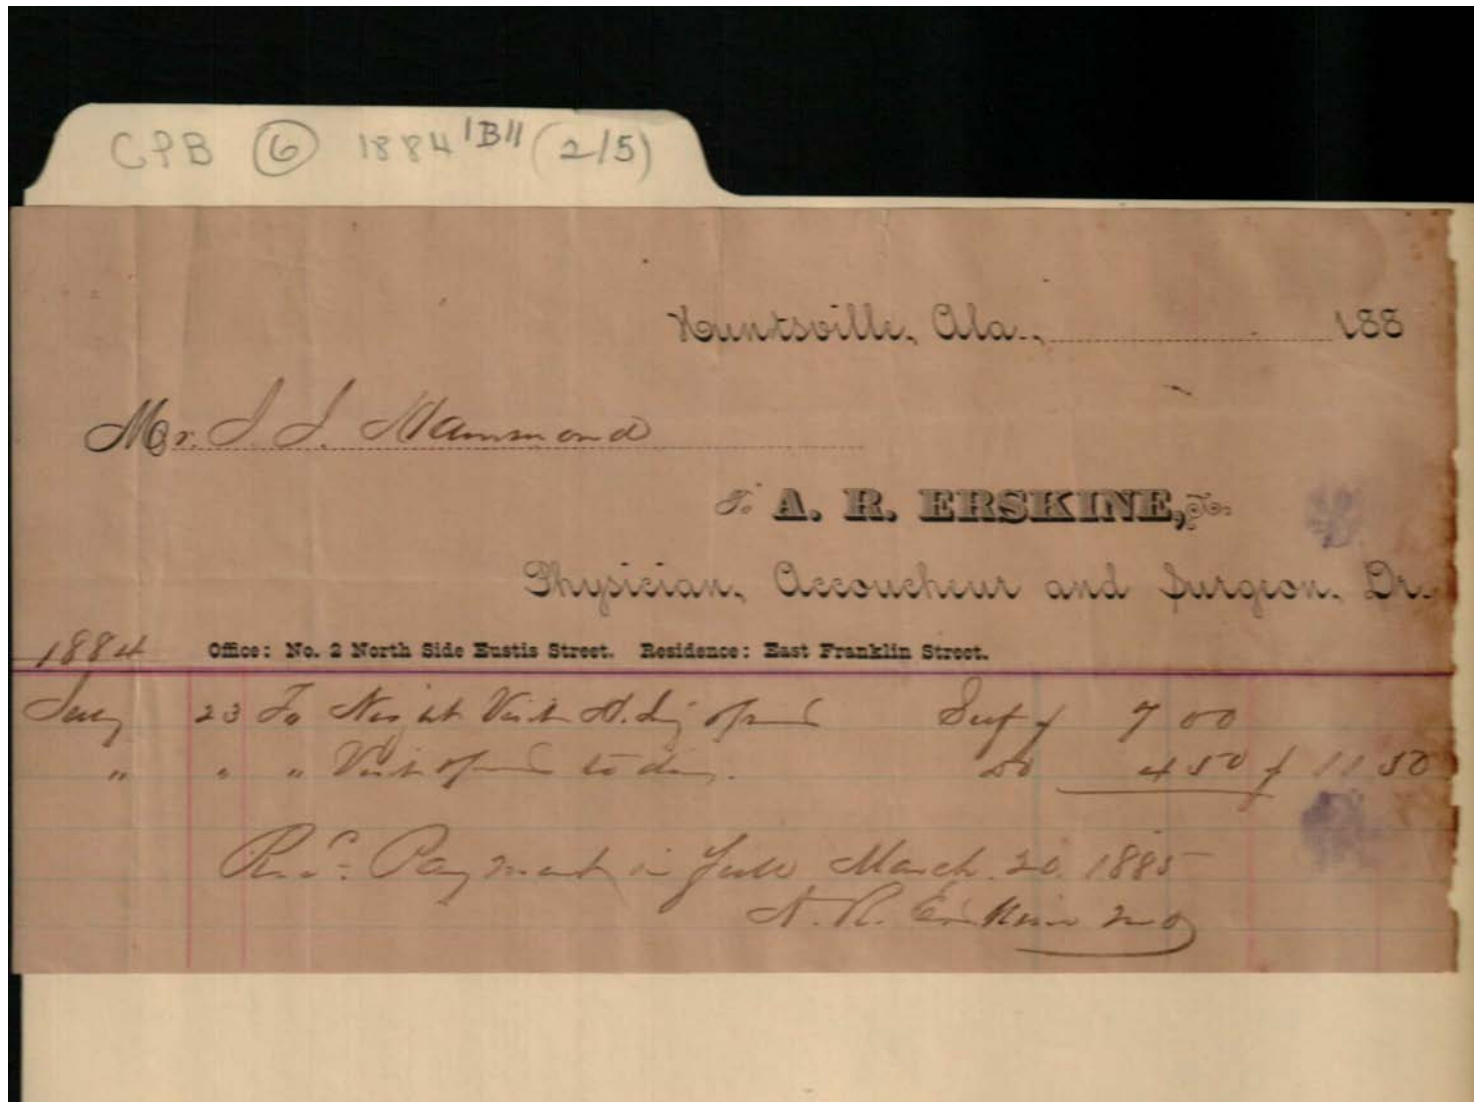 CPB 6 1884 "B" (2/5)
Huntsville, Ala., 188
Mr. J. J. Hammond
To A. R. ERSKINE,
Physician, Accoucheur and Surgeon, Dr.
1884 Office: No. 2 North Side Eustis Street. Residence: East Franklin Street.
23 To Night Visit Self $ 7 00
" " " Visit 4 50 $ 11 50
Rec. Payment in full March 20 1885
A. R. Erskine MD